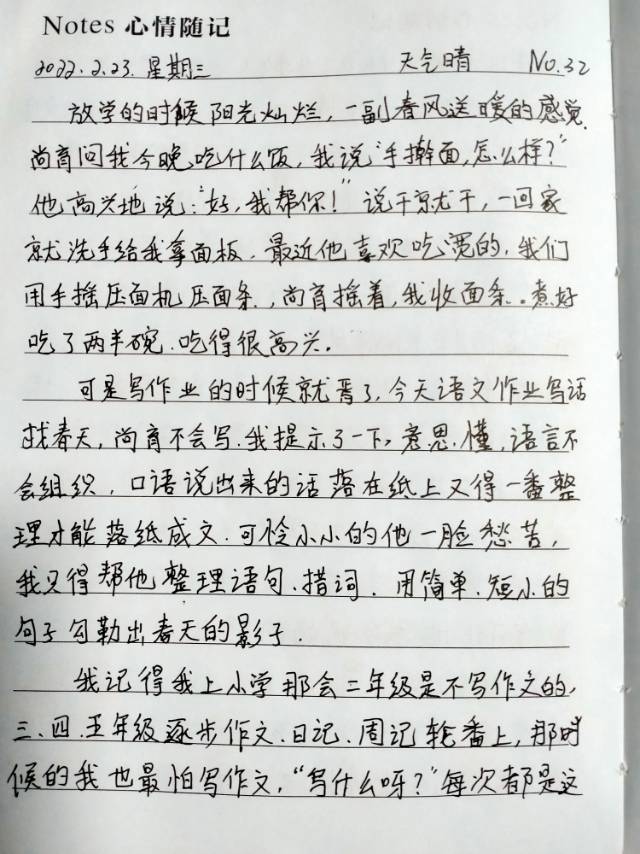 Notes 心情随记
2022.2.23. 星期三 天气晴 No.32
放学的时候阳光灿烂，一副春风送暖的感觉.
尚育问我今晚吃什么饭，我说“手擀面，怎么样？”
他高兴地说：“好，我帮你！”说干就干，一回家
就洗手给我拿面板．最近他喜欢吃宽的，我们
用手摇压面机压面条，尚育摇着，我收面条。煮好
吃了两半碗．吃得很高兴．
可是写作业的时候就蔫了，今天语文作业写话
找春天，尚育不会写．我提示了一下，意思．懂，语言不
会组织．口语说出来的话落在纸上又得一番整
理才能落纸成文．可怜小小的他一脸愁苦，
我只得帮他整理语句、措词．用简单、短小的
句子勾勒出春天的影子．
我记得我上小学那会二年级是不写作文的，
三、四、五年级逐步作文、日记、周记轮番上，那时
候的我也最怕写作文，“写什么呀？”每次都是这